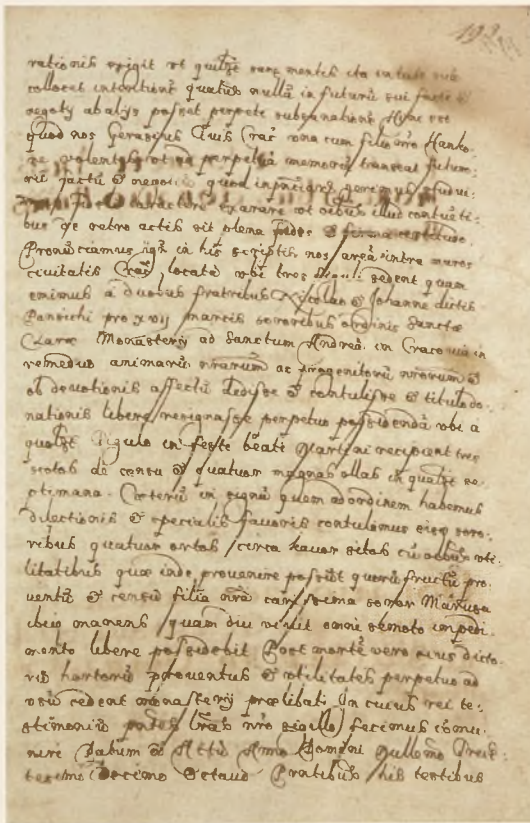 193
rationis exigit ut quilibet sane mentis ita
collocet intentionē quatenus nullā in futurū sui facti &
negotij ab alijs posset perpeti subsannationē Hinc est
quod nos Gerasius Civis Crac una cum filio nrō Hanko-
ne volentes ut ad perpetuā memoriā transeat futuro-
rū factū & negotiū quod inpnciarū gerimus
fideli caractere exarare ut oībus illud contuēti-
bus de retro actis sit plena fides & firma certitudo
Pronūciamus igr in his scriptis nos areā intra muros
civitatis Crac, locatā ubi tres figuli sedent quam
emimus a duobus fratribus Nicolao & Johanne dictis
Pansichi pro xvij marcis sororibus ordinis Sanctæ
Claræ Monasterij ad Sanctum Andreā in Cracovia in
remediū animarū nrarum ac progenitorū nrorum &
ob devotionis affectū dedisse & contulisse & titulo do-
nationis libere resignasse perpetuo possidendā ubi a
quolibet figulo in feste beati Martini recipient tres
scotos de censu & quatuor magnas ollas in qualibet se-
ptimana. Cæterū in signū quem ad ordinem habemus
dilectionis & specialis favoris contulimus eisdē soro-
ribus quatuor ortos circa sitos cū oībus uti-
litatibus quæ inde provenire possūt quorū fructū pro-
ventū & censū filia nrā carissima soror
ibidē manens quam diu vixit omni remoto impedi-
mento libere possidebit Post mortē vero eius dicto-
rū hortorū proventus & utilitates perpetuo ad
usū cedent monasterij prælibati In cuius rei te-
stimoniū pntes lrās nrō sigillo fecimus cōmu-
niri Datum & Actū Anno Domini Millesimo Trecē-
tesimo Decimo Octavo Prætibus his testibus